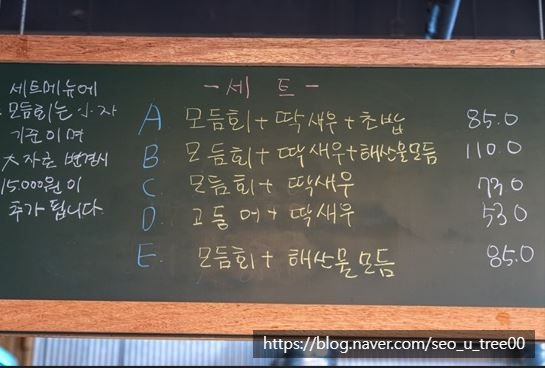 세트메뉴에
모듬회는 小자
기준이며
大자로 변경시
15.000원이
추가 됩니다.
- 세 트 -
A 모듬회 + 딱새우 + 초밥 85.0
B. 모듬회 + 딱새우 + 해산물모듬 110.0
C. 모듬회 + 딱새우 73.0
D. 고등어 + 딱새우 53.0
E. 모듬회 + 해산물모듬 85.0
https://blog.naver.com/seo_u_tree00